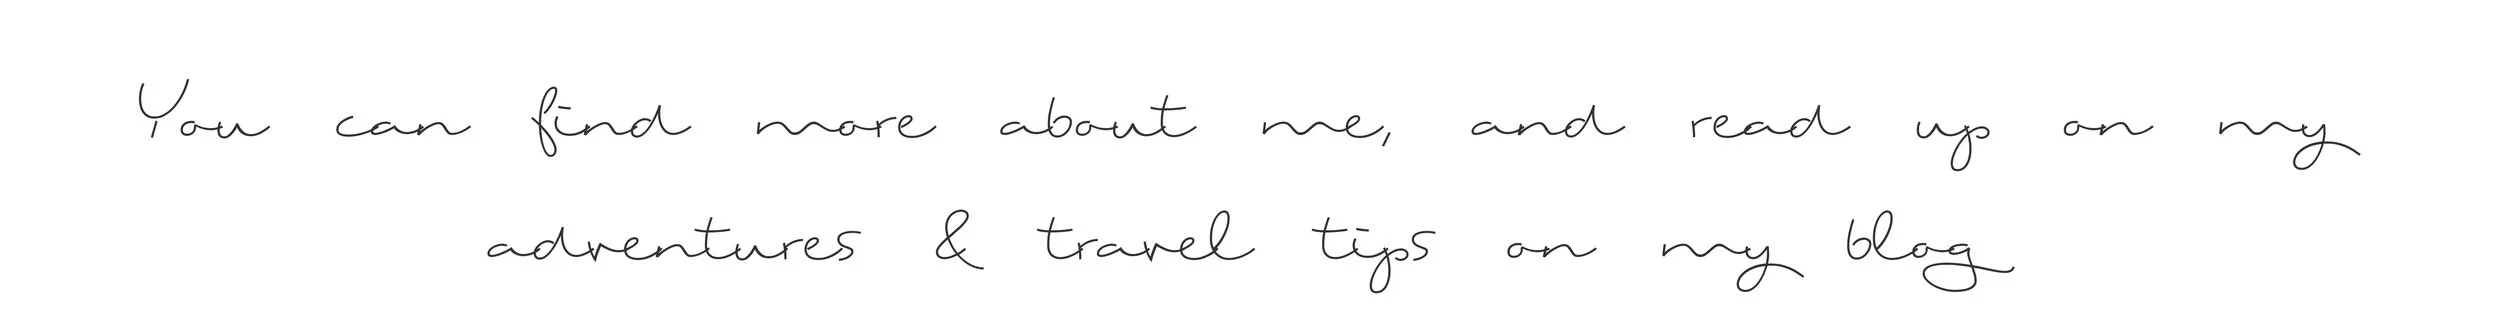 You can find more about me, and read up on my
adventures & travel tips on my blog